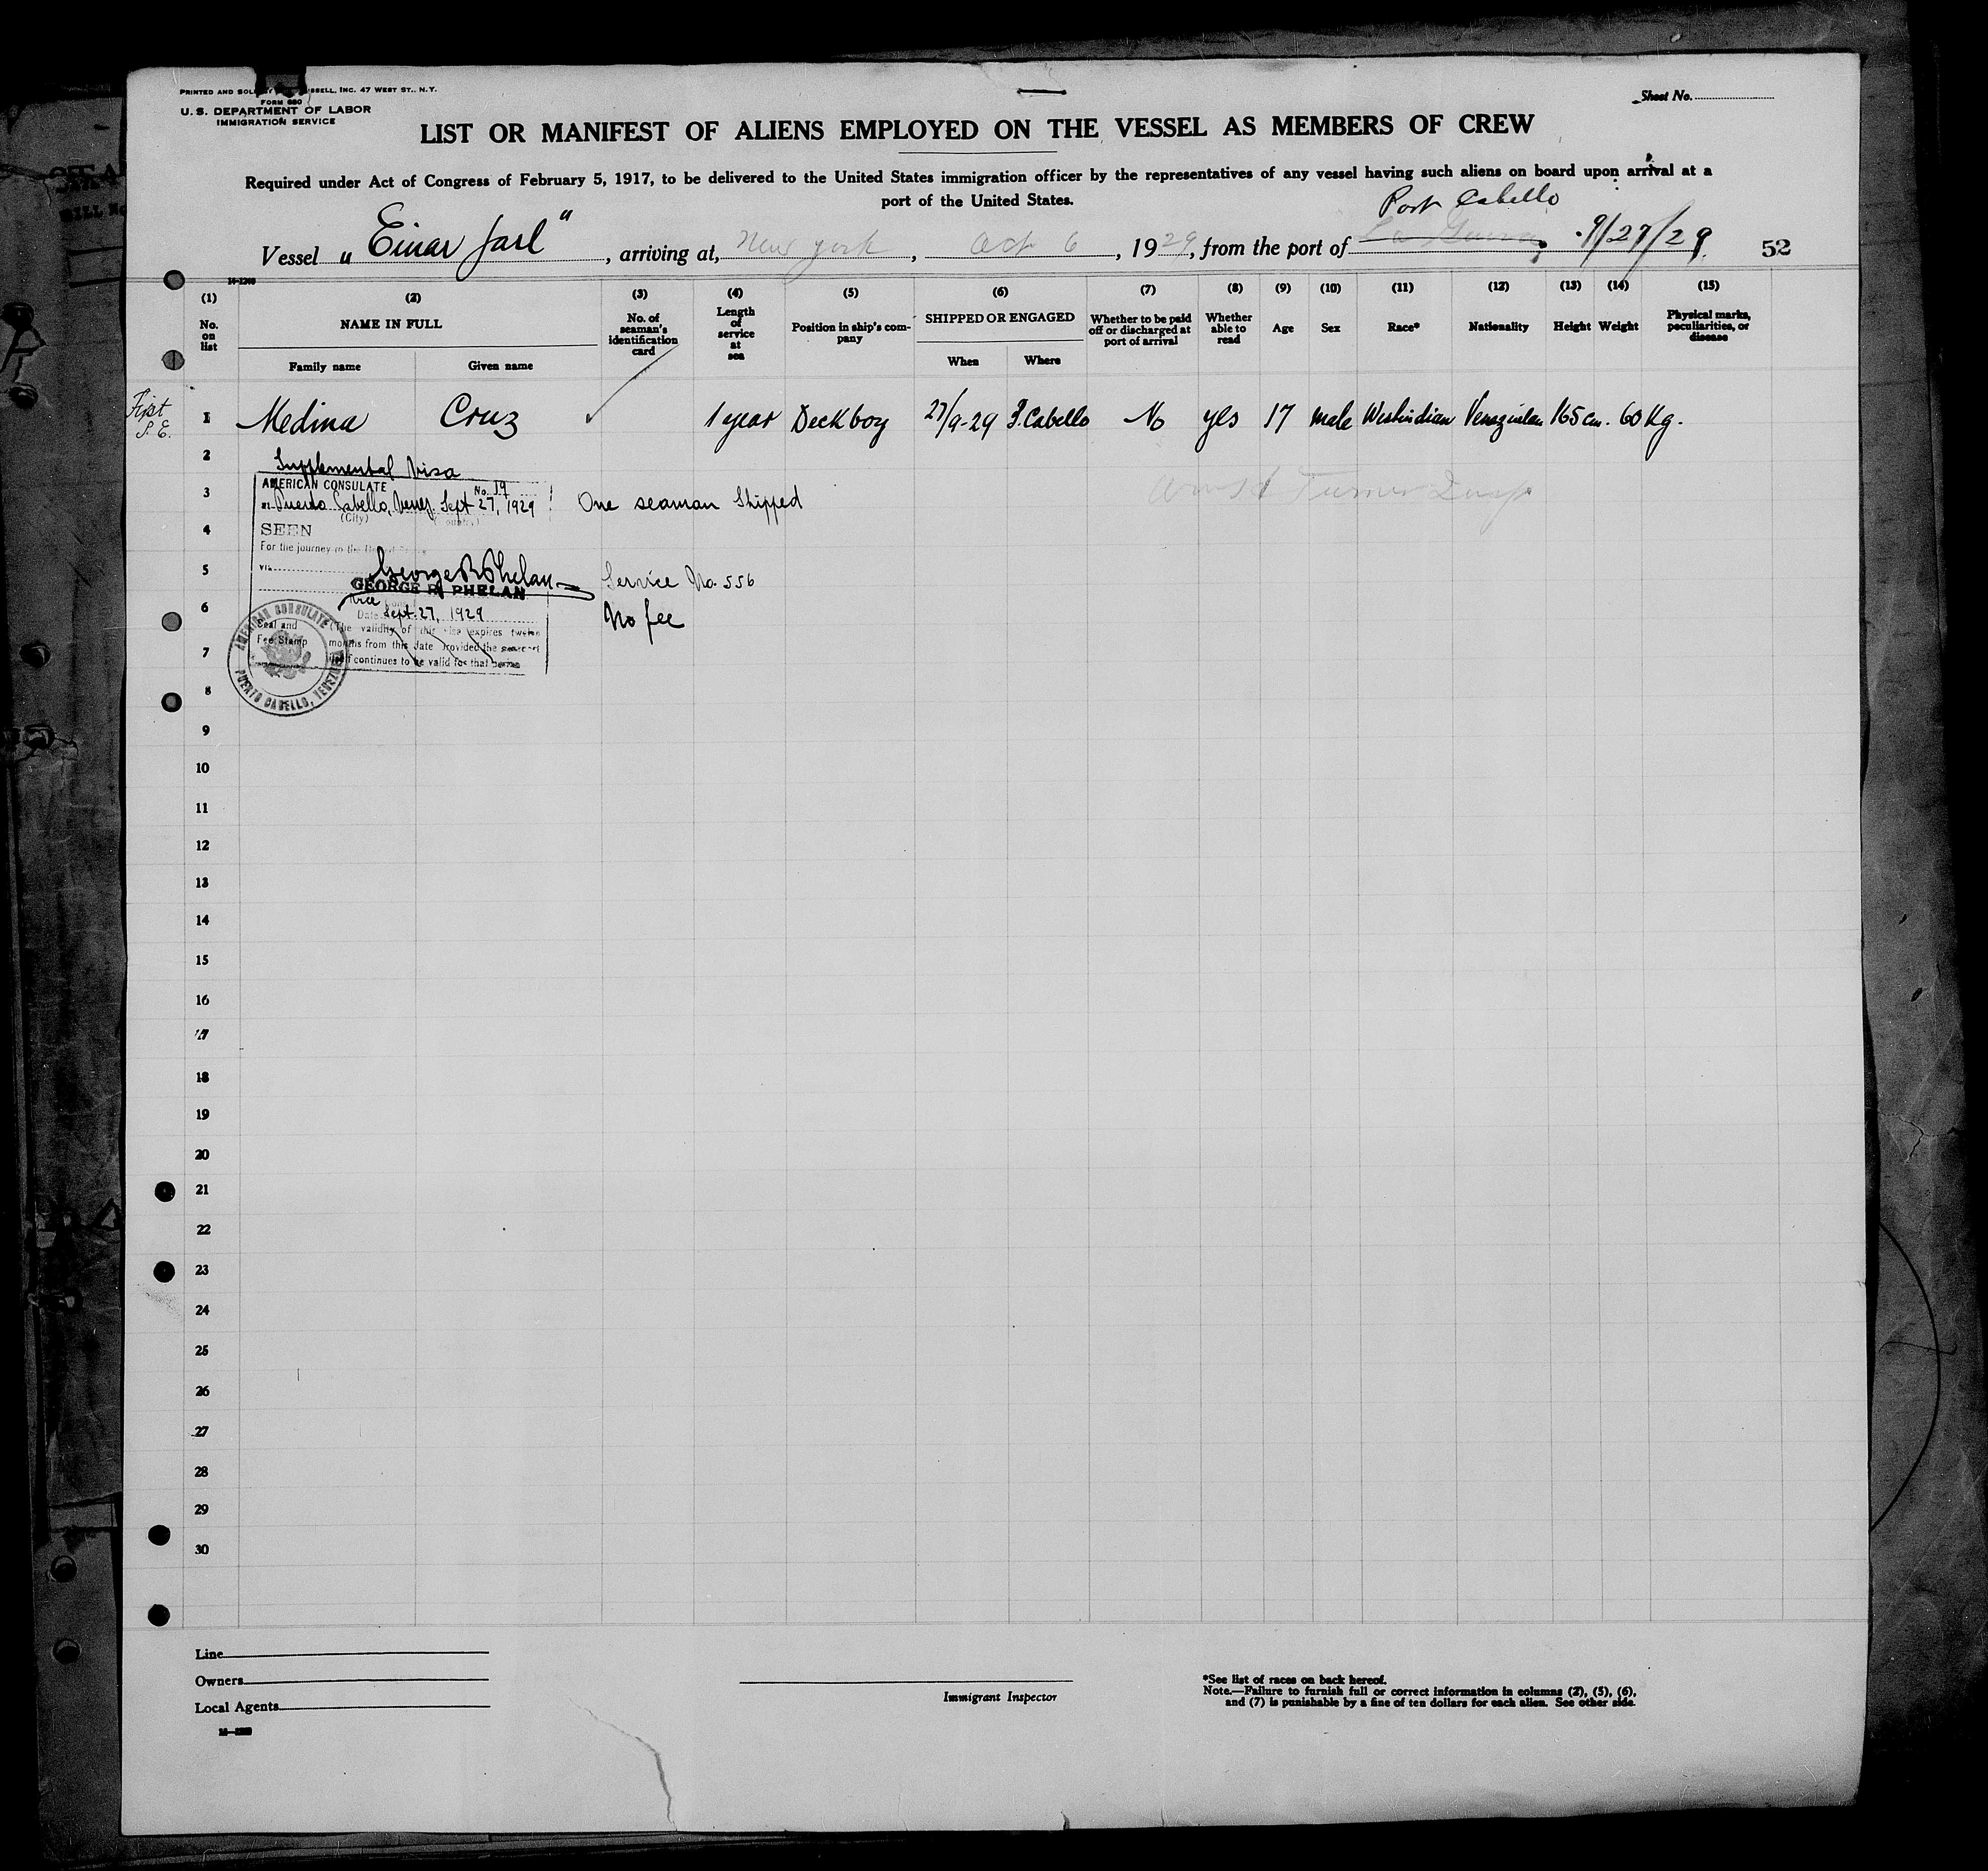 PRINTED AND SOLD BY
SSELL, INC. 47 WEST ST., N.Y.
FORM 680
U. S. DEPARTMENT OF LABOR
IMMIGRATION SERVICE
Sheet No.
LIST OR MANIFEST OF ALIENS EMPLOYED ON THE VESSEL AS MEMBERS OF CREW
Required under Act of Congress of February 5, 1917, to be delivered to the United States immigration officer by the representatives of any vessel having such aliens on board upon arrival at a
port of the United States.
Port Cabello
Vessel " Einar Jarl " , arriving at, New York , Oct 6 , 1929, from the port of La Guaira, 9/27/29. 52
14-1240
(1) (2) (3) (4) (5) (6) (7) (8) (9) (10) (11) (12) (13) (14) (15)
No. on list
NAME IN FULL
Family name Given name
No. of seaman's identification card
Length of service at sea
Position in ship's company
SHIPPED OR ENGAGED
When Where
Whether to be paid off or discharged at port of arrival
Whether able to read
Age Sex Race* Nationality Height Weight
Physical marks, peculiarities, or disease
First S. E. 1 Medina Cruz 1 year Deckboy 27/9-29 P. Cabello No yes 17 male Westindian Venezuelan 165 cm. 60 Kg.
2
Supplemental Visa
3
AMERICAN CONSULATE
No. 19
at Puerto Cabello, Venez. Sept 27, 1929
(City) (Country)
One seaman Shipped
4
SEEN
For the journey to the United States
5
via
George R Phelan
GEORGE R PHELAN
Service No. 556
6
Vice
Date Sept. 27, 1929
No fee
Seal and
Fee Stamp
(The validity of this visa expires twelve
months from this date provided the passport
itself continues to be valid for that
AMERICAN CONSULATE
PUERTO CABELLO, VENEZUELA
7
8
9
10
11
12
13
14
15
16
17
18
19
20
21
22
23
24
25
26
27
28
29
30
Line
Owners
Local Agents
Immigrant Inspector
*See list of races on back hereof.
Note.—Failure to furnish full or correct information in columns (2), (5), (6),
and (7) is punishable by a fine of ten dollars for each alien. See other side.